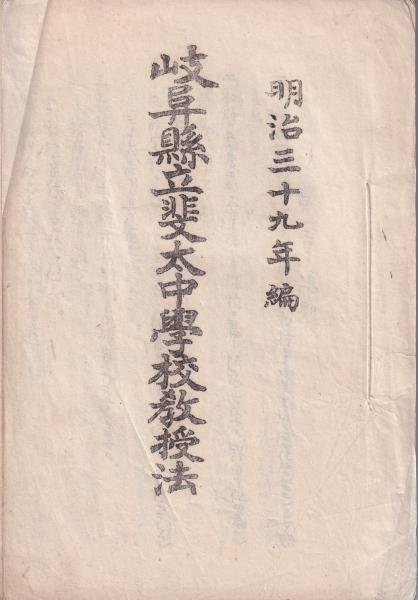 明治三十九年編
岐阜縣立斐太中學校教授法